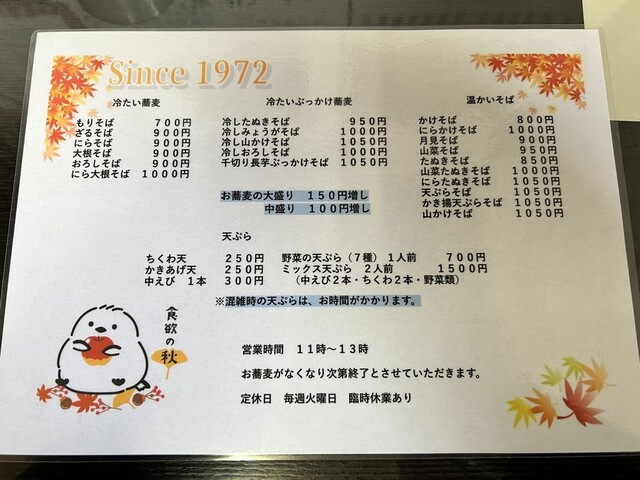 Since 1972
冷たい蕎麦
もりそば 700円
ざるそば 900円
にらそば 900円
大根そば 900円
おろしそば 900円
にら大根そば 1000円
冷たいぶっかけ蕎麦
冷したぬきそば 950円
冷しみょうがそば 1000円
冷し山かけそば 1050円
冷しおろしそば 1000円
千切り長芋ぶっかけそば 1050円
温かいそば
かけそば 800円
にらかけそば 1000円
月見そば 900円
山菜そば 950円
たぬきそば 850円
山菜たぬきそば 1000円
にらたぬきそば 1050円
天ぷらそば 1050円
かき揚天ぷらそば 1050円
山かけそば 1050円
お蕎麦の大盛り 150円増し
中盛り 100円増し
天ぷら
ちくわ天 250円
かきあげ天 250円
中えび 1本 300円
野菜の天ぷら(7種) 1人前 700円
ミックス天ぷら 2人前 1500円
(中えび2本・ちくわ2本・野菜類)
※混雑時の天ぷらは、お時間がかかります。
食欲の秋
営業時間 11時~13時
お蕎麦がなくなり次第終了とさせていただきます。
定休日 毎週火曜日 臨時休業あり